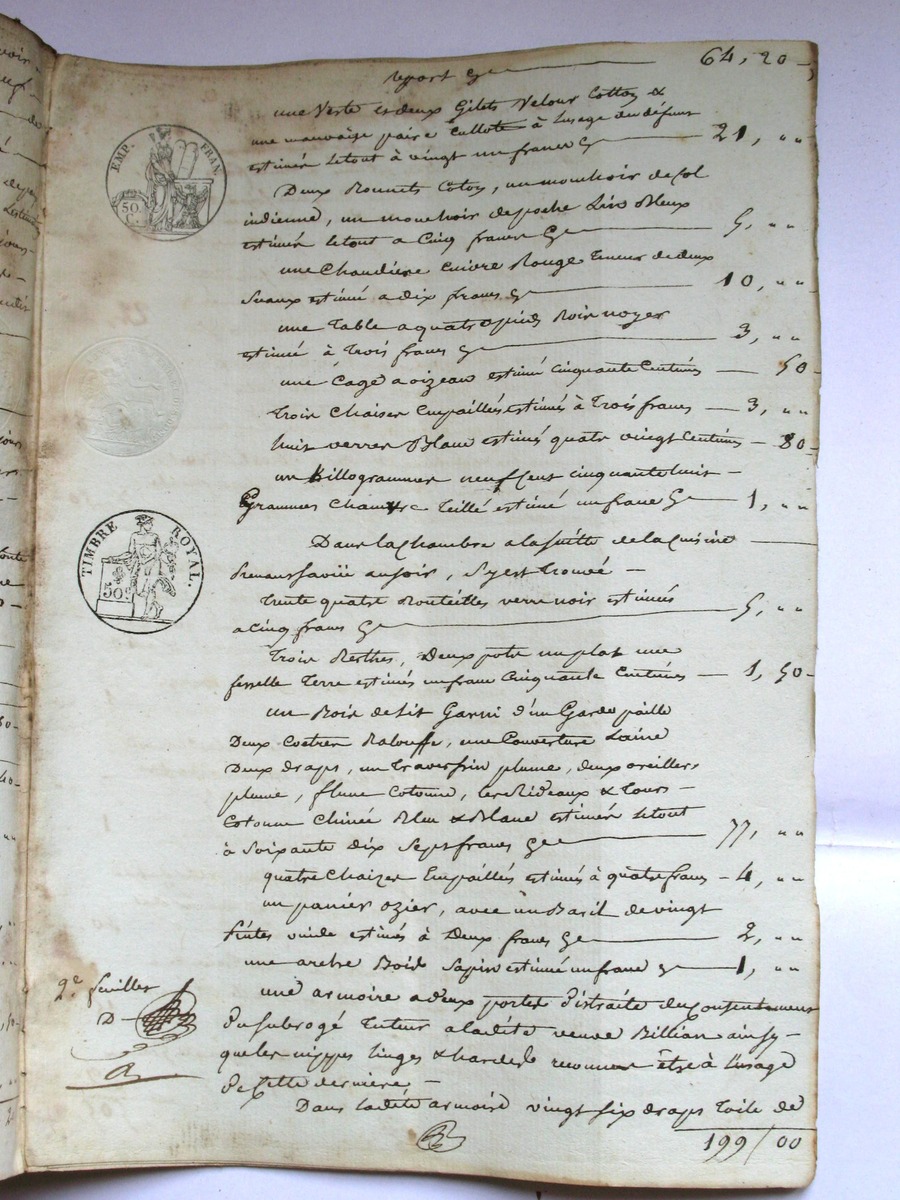 report 64, 20
une Veste et deux Gilets Velour Cotton &
une mauvaise paire Cullotte à Lusage du défunt
estimés Letout à vingt un francs 21, " "
EMP. FRAN.
50 C.
Deux Bonnets Coton, un mouchoir de Col
indienne, un mouchoir de poche Lin Bleux
estimés letout a Cinq francs 5, " "
une Chaudière Cuivre Rouge teneur de deux
Seaux estimé a dix francs 10, " "
une Table a quatre pieds Bois noyer
estimée à Trois francs 3, " "
une Cage a oizeau estimé Cinquante Centimes 50
Trois Chaises Empaillés estimés à Trois francs 3, " "
huit verres Blanc estimés quatre vingt Centimes 80
un Killogrammes neuf Cent Cinquante huit
Grammes Chanvre Teillé estimé un franc 1, " "
TIMBRE ROYAL.
50 c.
Dans la Chambre a la suitte de la Cuisine
Prenans au soir, s'y est Trouvé
Trente quatre Bouteilles verre noir estimées
a Cinq francs 5, " "
Trois Berthes, Deux pots un plat une
fesselle Terre estimés un franc Cinquante Centimes 1, 50
un Bois de Lit Garni d'un Garde paille
Deux Coetres Balouffe, une Couverture Laine
Deux draps, un Traversin plume, deux oreillers
plume, flene Cotonne, les Rideaux & Tours
Cotonne Chinée Bleu & Blanc estimés Letout
à Soixante dix Sept francs 77, " "
quatre Chaizes Empaillés estimés à quatre francs 4, " "
un panier ozier, avec un Baril de vingt
Pintes vuide estimés à Deux francs 2, " "
une arche Bois Sapin estimé un franc 1, " "
2e feuillet
D
une armoire a deux portes distraite du Consentement
du subrogé Tuteur a ladite veuve Billian ainsy
que les nippes linges & hardes reconnue être à L'usage
de Cette dernière
Dans ladite armoire vingt six draps Toile de
199 / 00